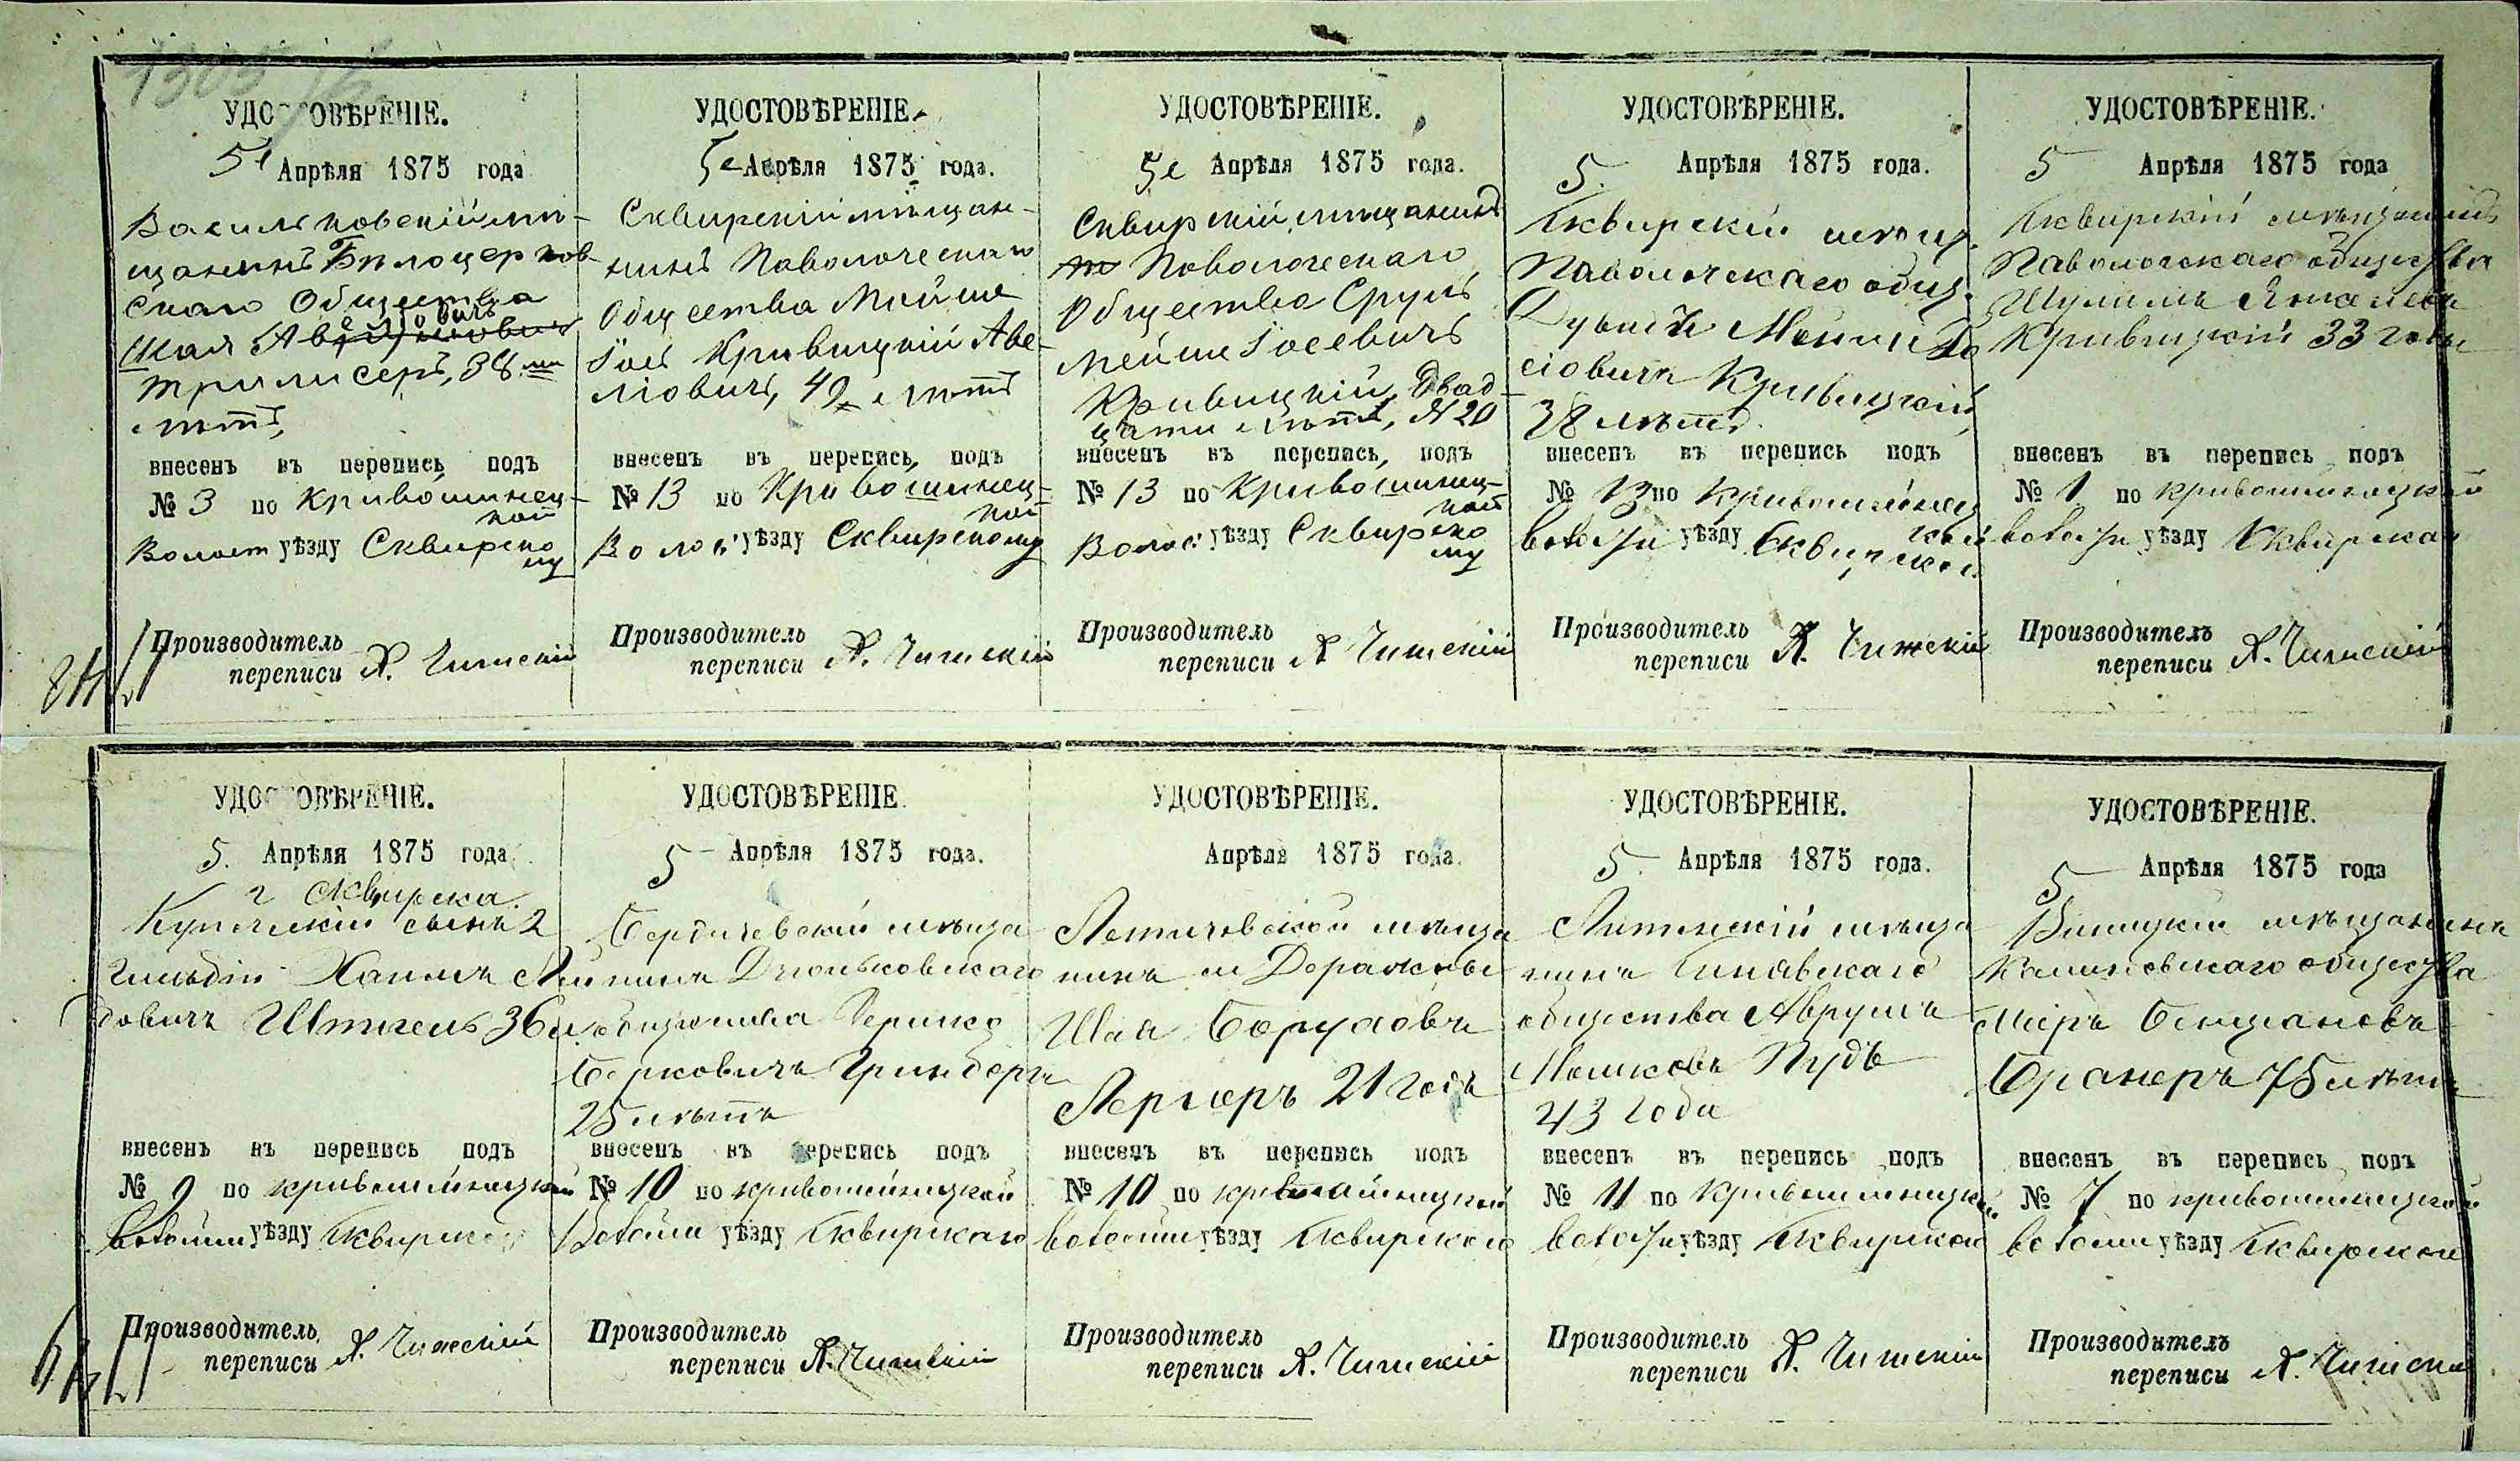 УДОСТОВѢРЕНІЕ.
5е Апрѣля 1875 года
Васильковскій мѣ-
щанинъ Бѣлоцерков-
скаго Общества
Шая
Трилисеръ, 38 ми
лѣтъ,
внесенъ въ перепись подъ
№ 3 по Кривошинец-
кой
Волост уѣзду Сквирско
му
Производитель
переписи Я. Чижскій
УДОСТОВѢРЕНІЕ.
5е Апрѣля 1875 года.
Сквирскій мѣщан-
нинъ Паволочскаго
Общества Мойше
Іось Кривицкій Аве-
ліовичъ, 49 лѣтъ
внесенъ въ перепись подъ
№ 13 по Кривошинец-
кой
Волос уѣзду Сквирскому
Производитель
переписи Я. Чижскій
УДОСТОВѢРЕНІЕ.
5е Апрѣля 1875 года.
Сквирскій мѣщанинъ
Поволочскаго
Общества Сруль
Мейше Іосевичъ
Кривицкій, двад-
цати лѣтъ, № 20
внесенъ въ перепись, подъ
№ 13 по Кривошинец-
кой
Волос уѣзду Сквирско
му
Производитель
переписи Я Чижскій
УДОСТОВѢРЕНІЕ.
5. Апрѣля 1875 года.
Сквирскій мѣщ.
Паволочскаго общ.
Мойше Іо
сіовичъ Кривицкій,
лѣтъ
внесенъ въ перепись подъ
№ 13 по Кривошинец
кой
волости уѣзду Сквирской
Производитель
переписи Я. Чижскій
УДОСТОВѢРЕНІЕ.
5 Апрѣля 1875 года
Сквирскій мѣщанинъ
Паволочскаго общества
Шулимъ
Кривицкій 33 года
внесенъ въ перепись подъ
№ 1 по Кривошинецкой
волости уѣзду Сквирско
Производитель
переписи Я. Чижскій
УДОСТОВѢРЕНІЕ.
5. Апрѣля 1875 года
г Сквирска
Купеческій сынъ 2
гильдіи Хаимъ Лей
бовичъ Штигель 36 л.
внесенъ въ перепись подъ
№ 9 по кривошинецкой
волости уѣзду Сквирско
Производитель
переписи Я. Чижскій
УДОСТОВѢРЕНІЕ.
5 Апрѣля 1875 года.
Бердичевскій мѣща
нинъ Дзюньковскаго
общества
Берковичъ Гринбергъ
25 лѣтъ
внесенъ въ перепись подъ
№ 10 по кривошинецкой
Волости уѣзду Сквирскаго
Производитель
переписи Я. Чижскій
УДОСТОВѢРЕНІЕ.
Апрѣля 1875 года.
Летичевской мѣща
нинъ м Деражны
Шая Боруховъ
Лернеръ 21 годъ
внесенъ въ перепись подъ
№ 10 по кривошинецкой
волости уѣзду Сквирского
Производитель
переписи Я. Чижскій
УДОСТОВѢРЕНІЕ.
5. Апрѣля 1875 года.
Литинскій мѣща
нинъ Синявскаго
общества Аврумъ
Мошковъ Пудъ
43 года
внесенъ въ перепись подъ
№ 11 по Кривошинецкой
волости уѣзду Сквирской
Производитель
переписи Я. Чижскій
УДОСТОВѢРЕНІЕ.
5 Апрѣля 1875 года
Виницкій мѣщанинъ
Калиновскаго общества
Меіръ
Бранеръ 75 лѣтъ
внесенъ въ перепись подъ
№ 7 по кривошинецкой
волости уѣзду Сквирской
Производитель
переписи Я. Чижскій